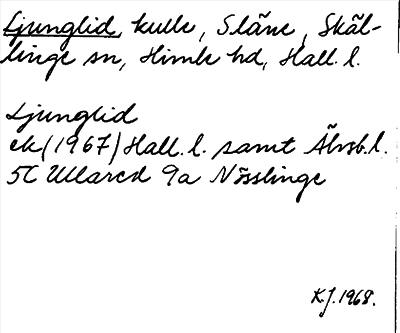 Ljunglid, kulle, Släne, Skäl-
linge sn, Himle hd, Hall. l.
Ljunglid
ek (1967) Hall. l. samt Älvsb. l.
5C Ullared 9a Nösslinge
K.J. 1968.